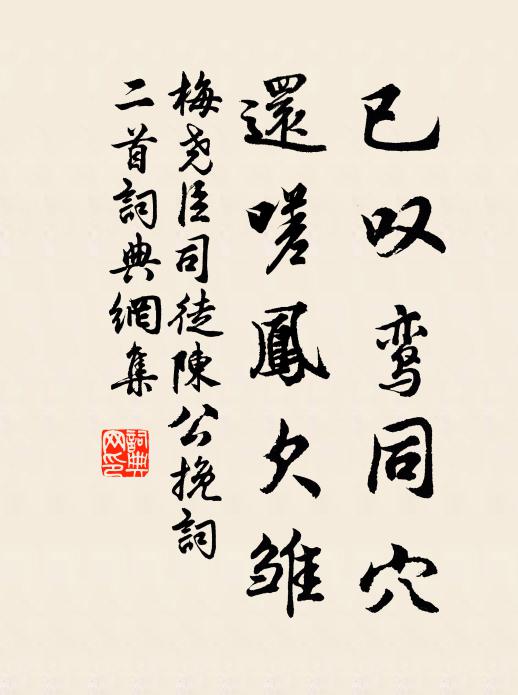 已叹鸾同穴
還嗟鳳欠雏
梅尧臣司徒陳公挽詞
二首詞典網集
詞典网印